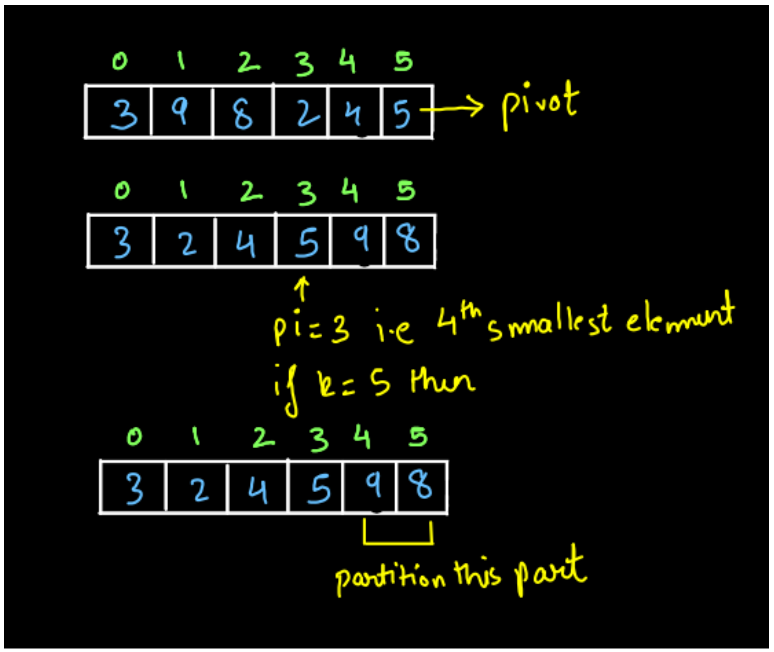 0 1 2 3 4 5
3 9 8 2 4 5 → pivot
0 1 2 3 4 5
3 2 4 5 9 8
↑
pi=3 i.e 4th smallest element
if k=5 then
0 1 2 3 4 5
3 2 4 5 9 8
partition this part